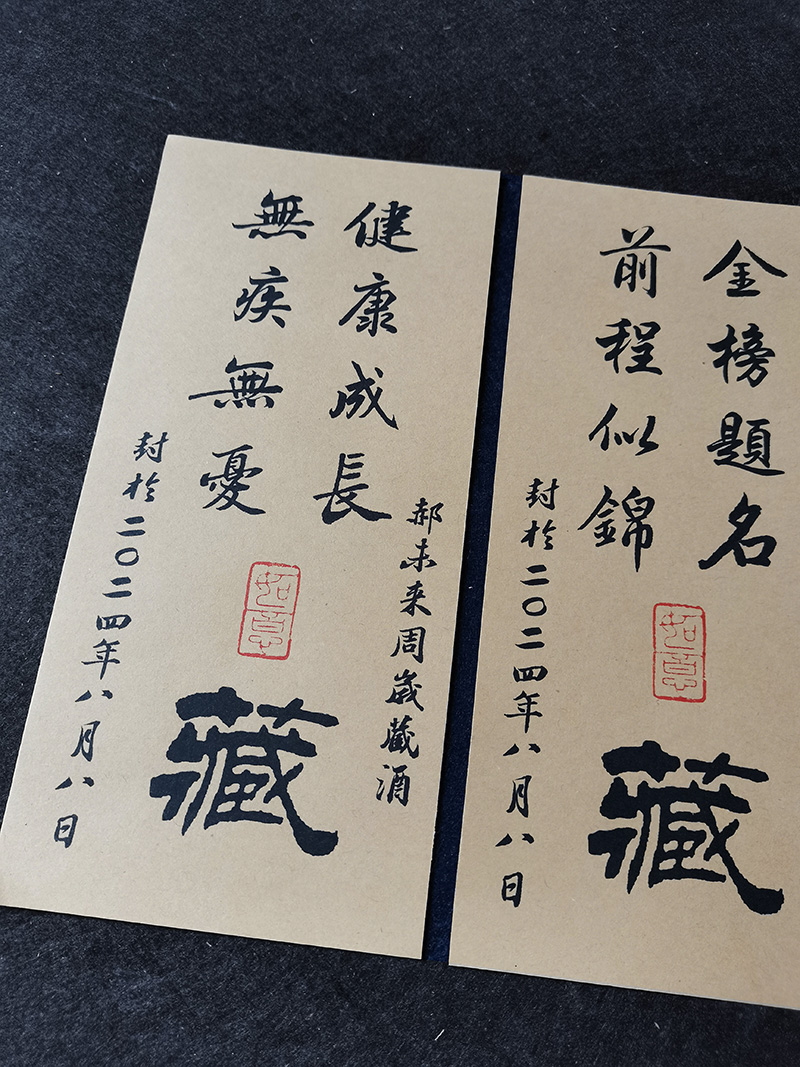 健康成長
無疾無憂
郝未来周歲藏酒
如意
藏
封於二〇二四年八月八日
金榜題名
前程似錦
如意
藏
封於二〇二四年八月八日